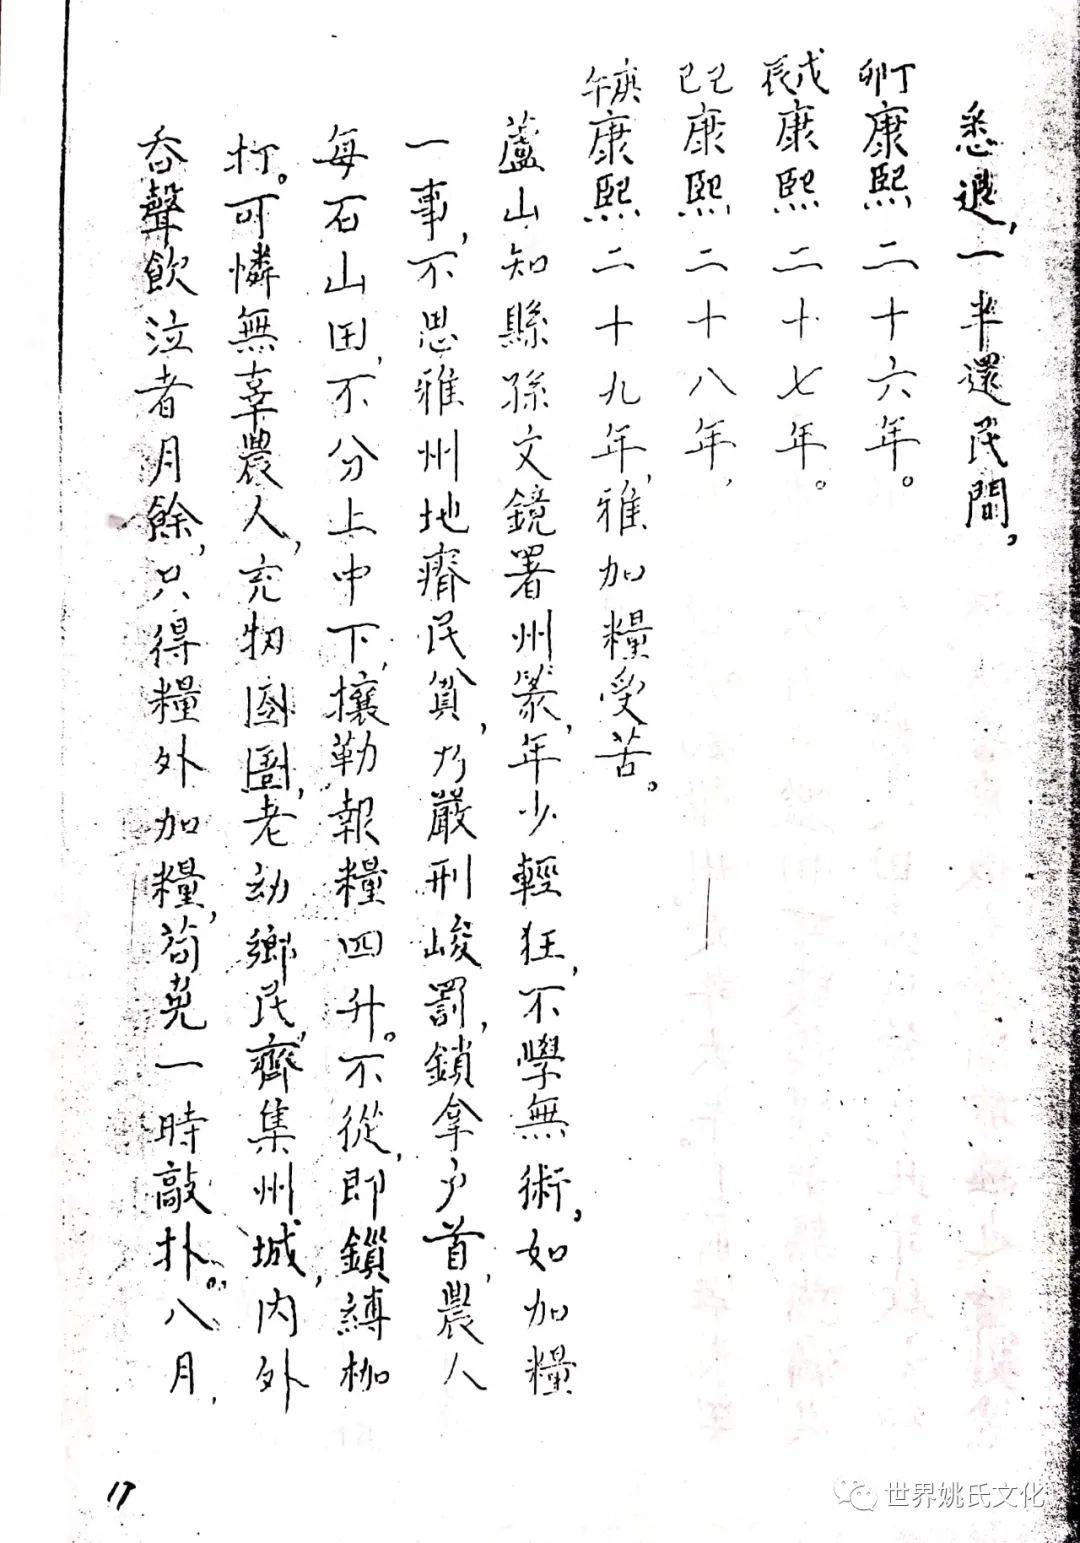 悉退，一半還民間，
丁卯康熙二十六年。
戊辰康熙二十七年。
己巳康熙二十八年，
庚午康熙二十九年，雅加糧受苦。
蘆山知縣孫文鏡署州篆，年少輕狂，不學無術，如加糧
一事，不思雅州地瘠民貧，乃嚴刑峻罰，鎖拿戶首，農人
每石山田，不分上中下，攘勒報糧四升。不從，即鎖縛枷
打。可憐無辜農人，充牣囹圄，老幼鄉民，齊集州城，內外
吞聲飲泣者月餘，只得糧外加糧，苟免一時敲扑。八月，
17
世界姚氏文化